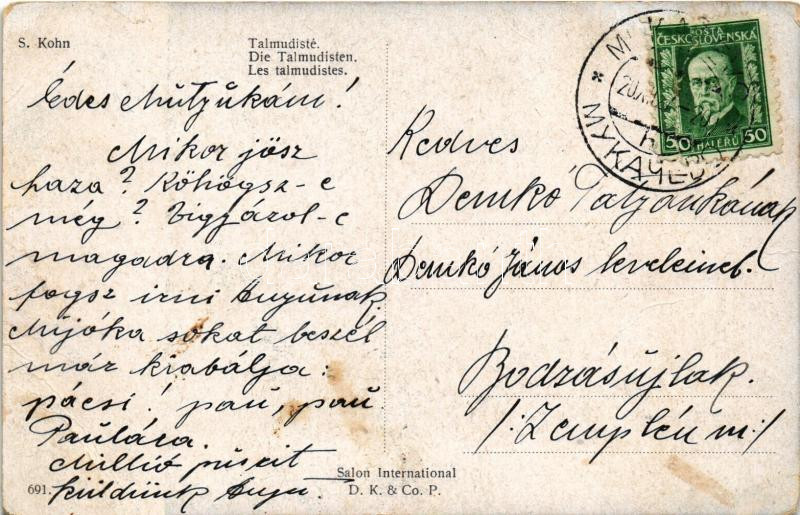 S. Kohn
Talmudisté.
Die Talmudisten.
Les talmudistes.
Édes Mutyukám!
Mikor jösz
haza? Köhögsz-e
még? Vigyázol-e
magadra. Mikor
fogsz irni Anyunak
sokat beszél
már kiabálja:
pácsi! pau, pau.
Paulára.
Millió puszit
küldünk Anyu.
691.
Salon International
D. K. & Co. P.
POSTA
ČESKOSLOVENSKÁ
50 HALÉŘŮ 50
МУКАЧЕВО
Kedves
Demkó Tatyánkának
Demkó János leveleinek.
Bodzásujlak.
/: Zemplén m :/